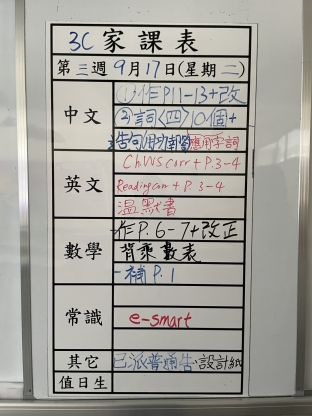 3C 家課表
第三週9月17日(星期二)
中文
(1)作P.11-13+改
②詞〈四〉10個+
造句 應用季詞
英文
Ch.WS corr + P.3-4
Reading corr + P.3-4
溫默書
數學
作P.6-7+改正
背乘數表
補P.1
常識
e-smart
其它
已派普通告 設計紙
值日生